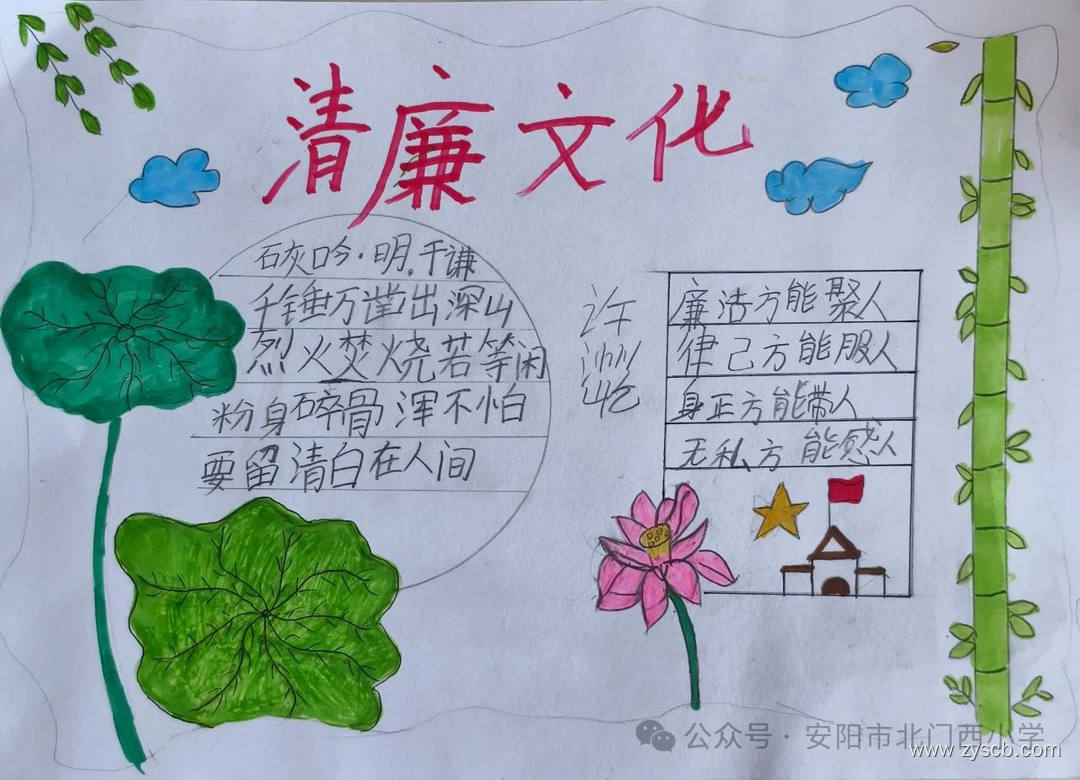 清廉文化
石灰吟·明.于谦
千锤万凿出深山
烈火焚烧若等闲
粉身碎骨浑不怕
要留清白在人间
廉洁方能聚人
律己方能服人
身正方能带人
无私方能感人
公众号·安阳市北门西小学
www.zyscb.com